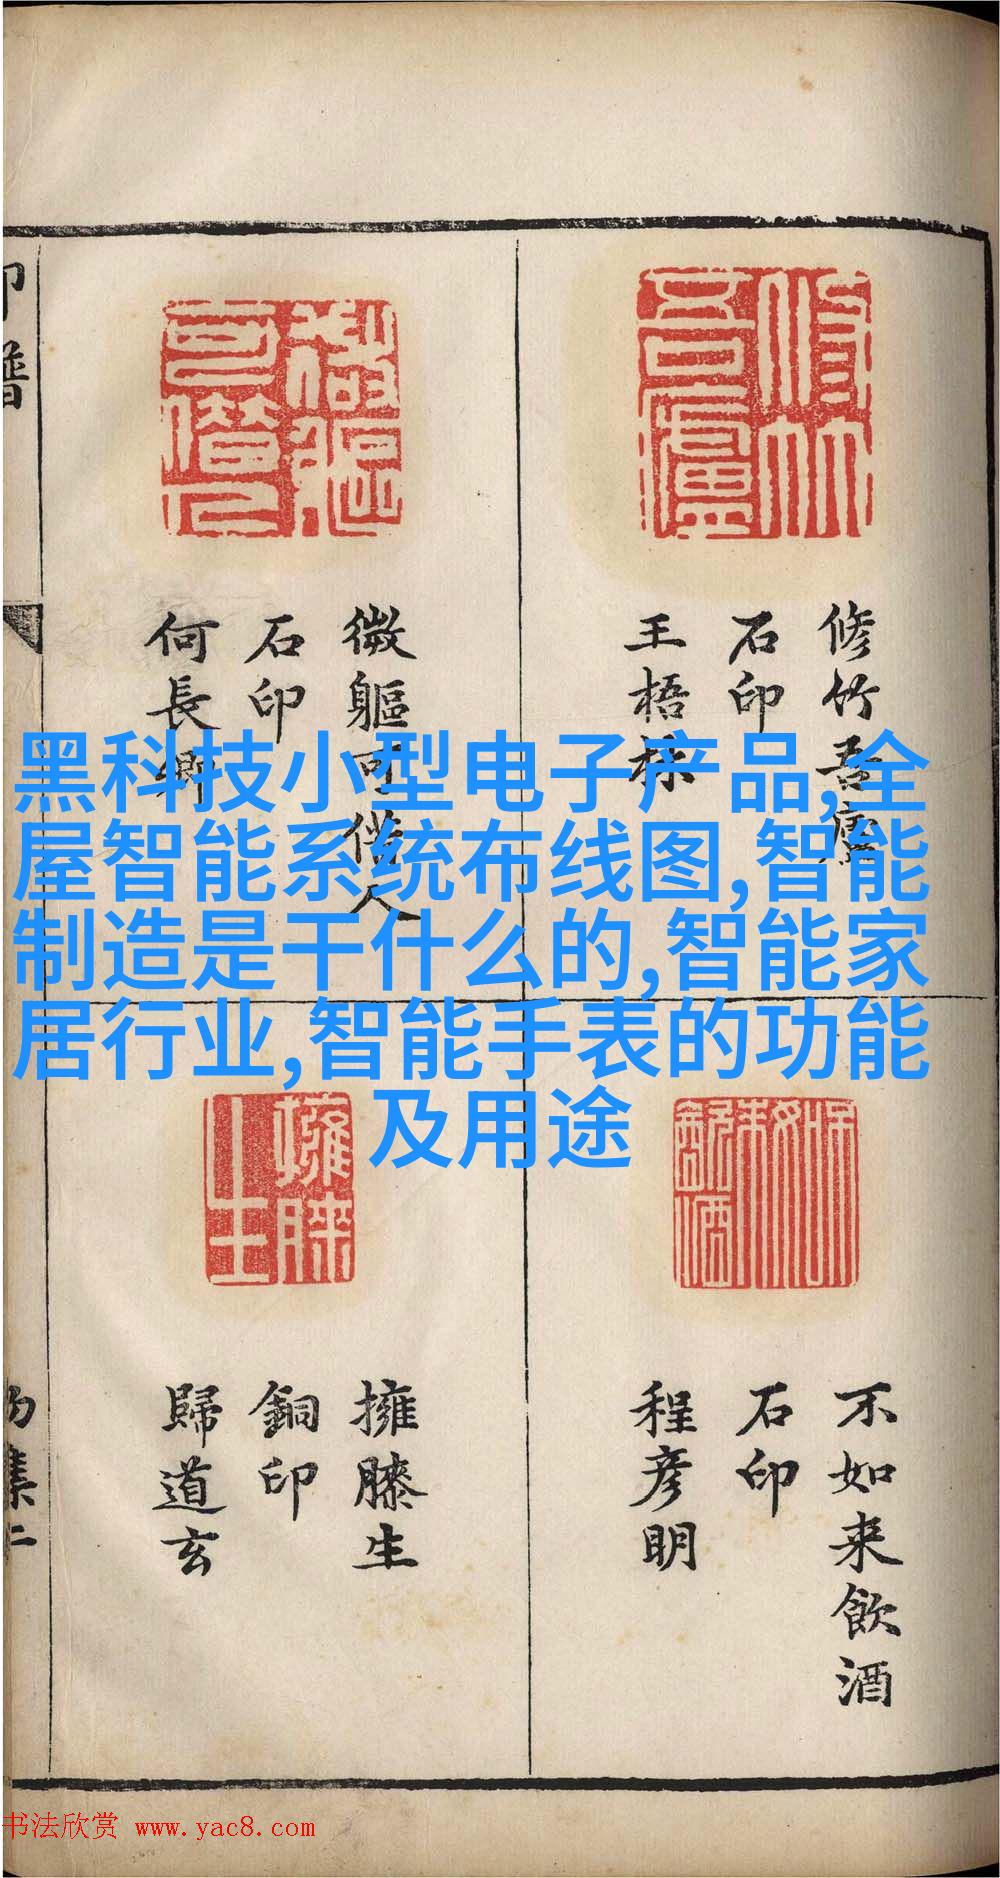 修竹吾廬
修竹吾廬
石印
王梧林
微軀可借人
微軀可借人
石印
何長卿
黑科技小型电子产品,全
屋智能系统布线图,智能
制造是干什么的,智能家
居行业,智能手表的功能
及用途
不如來飲酒
不如来飲酒
石印
程彦明
擁膝生
擁膝生
銅印
歸道玄
印譜
集二
书法欣赏 www.yac8.com